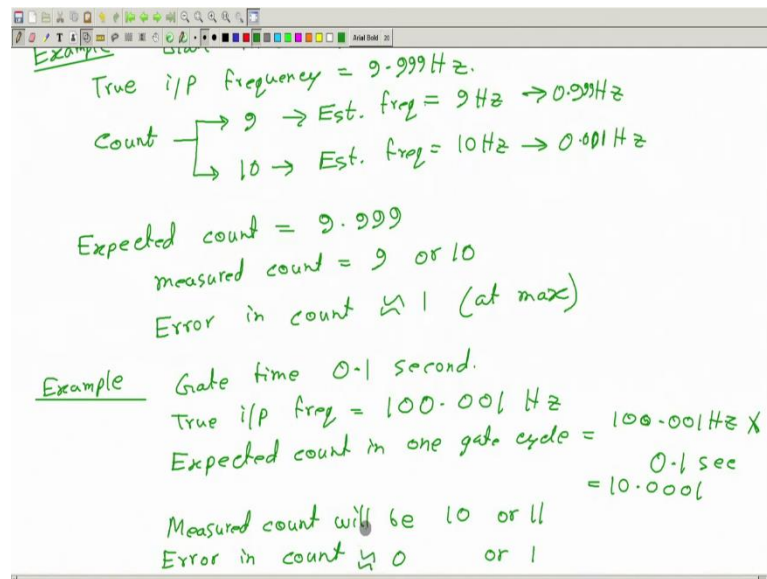 Arial Bold 20
Example
True i/p frequency = 9.999 Hz.
Count → 9 → Est. freq = 9 Hz → 0.99Hz
→ 10 → Est. freq = 10 Hz → 0.001 Hz
Expected count = 9.999
measured count = 9 or 10
Error in count ≈ 1 (at max)
Example Gate time 0.1 second.
True i/p freq = 100.001 Hz
Expected count in one gate cycle = 100.001 Hz X
0.1 sec
= 10.0001
Measured count will be 10 or 11
Error in count ≈ 0 or 1